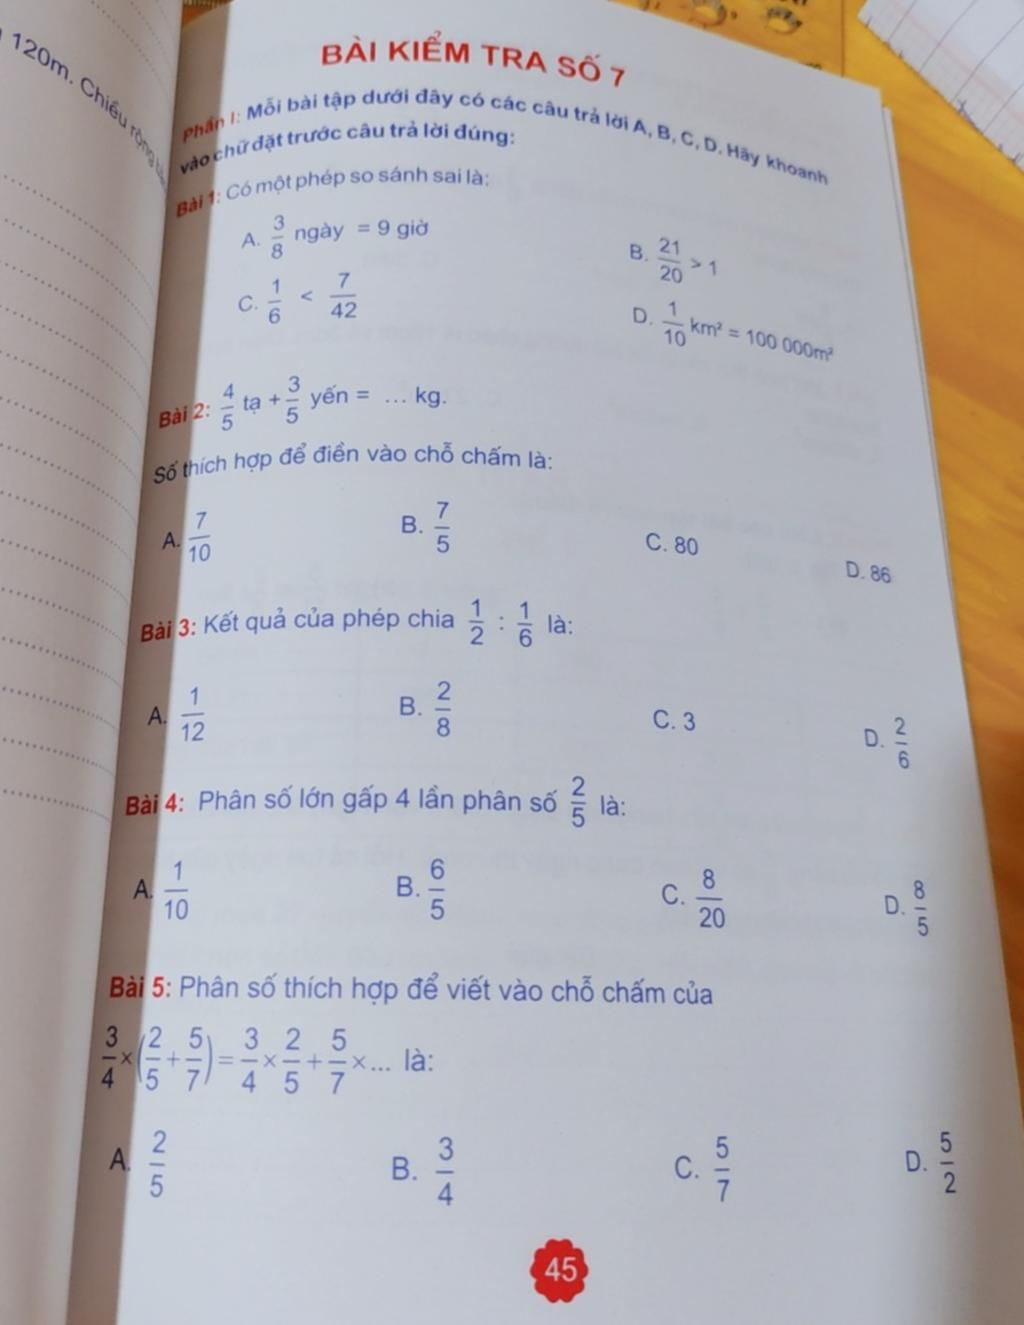 120m. Chiều rộng
BÀI KIỂM TRA SỐ 7
Phần I: Mỗi bài tập dưới đây có các câu trả lời A, B, C, D. Hãy khoanh
vào chữ đặt trước câu trả lời đúng:
Bài 1: Có một phép so sánh sai là:
A. 3/8 ngày = 9 giờ
B. 21/20 > 1
C. 1/6 < 7/42
D. 1/10 km² = 100 000m²
Bài 2: 4/5 tạ + 3/5 yến = ... kg.
Số thích hợp để điền vào chỗ chấm là:
A. 7/10 B. 7/5 C. 80 D. 86
Bài 3: Kết quả của phép chia 1/2 : 1/6 là:
A. 1/12 B. 2/8 C. 3 D. 2/6
Bài 4: Phân số lớn gấp 4 lần phân số 2/5 là:
A. 1/10 B. 6/5 C. 8/20 D. 8/5
Bài 5: Phân số thích hợp để viết vào chỗ chấm của
3/4 × (2/5 + 5/7) = 3/4 × 2/5 + 5/7 × ... là:
A. 2/5 B. 3/4 C. 5/7 D. 5/2
45